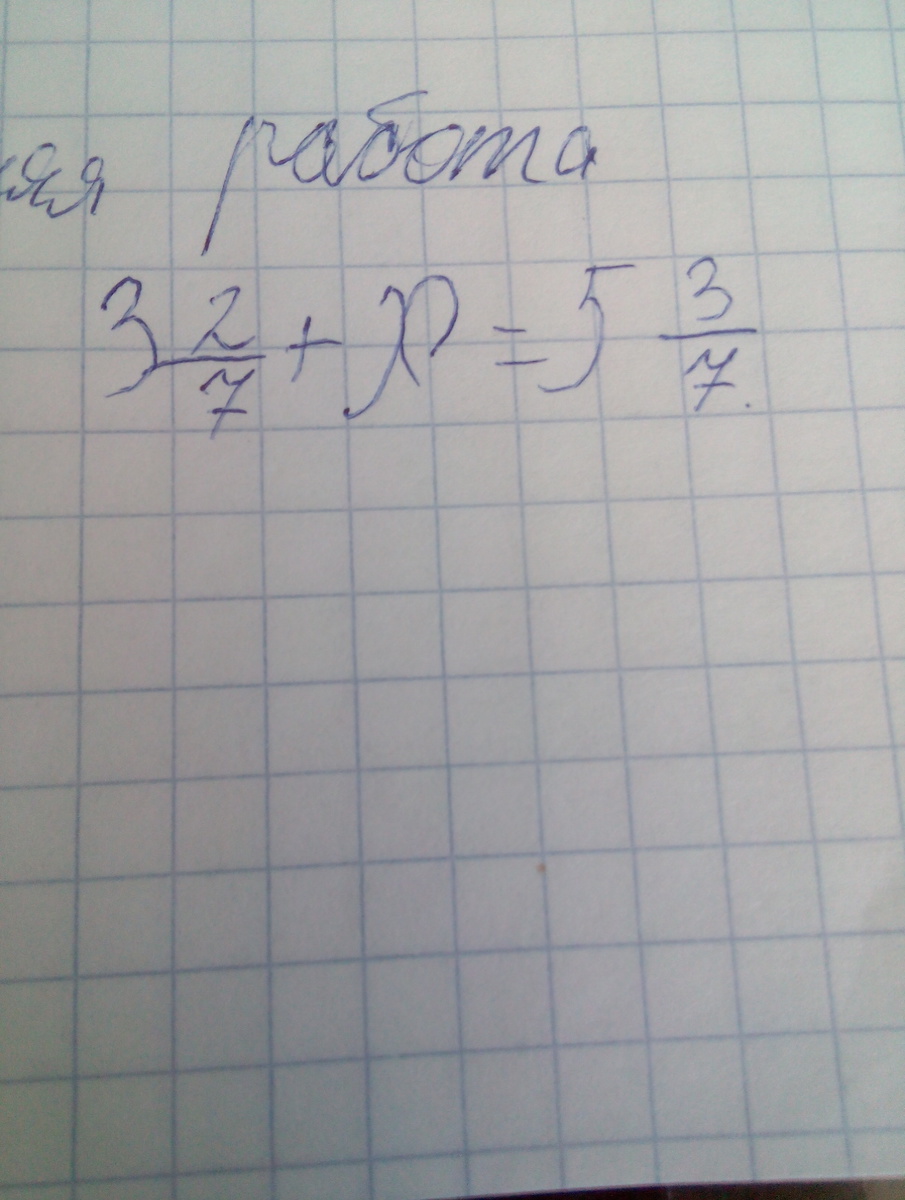 няя работа
3 2/7 + x = 5 3/7.